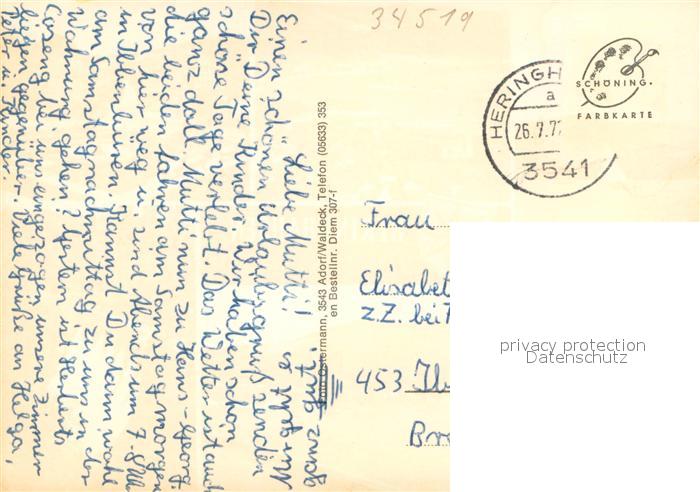 34519
Liebe Mutti!
Einen schönen Urlaubsgruß senden
Dir Deine Kinder. Wir haben schon
schöne Tage verlebt. Das Wetter ist auch
ganz doll. Mutti nun zu Hans-Georg,
die beiden fahren am Samstagmorgen
von hier weg u. sind Abends um 7-8 Uhr
in Ibbenbüren. Kannst Du dann wohl
am Samstagnachmittag zu uns in der
Wohnung gehen? Gestern ist Herberts
bei uns eingezogen, unsere Zimmer
liegen gegenüber. Viele Grüße an Helga,
Peter u. Kinder.
Ostermann, 3543 Adorf/Waldeck, Telefon (05633) 353
en Bestellnr. Diem 307-f
HERINGH
a
26.7.7
3541
SCHÖNING
FARBKARTE
Frau
Elisabet
z.Z. bei
453 Ib
privacy protection
Datenschutz